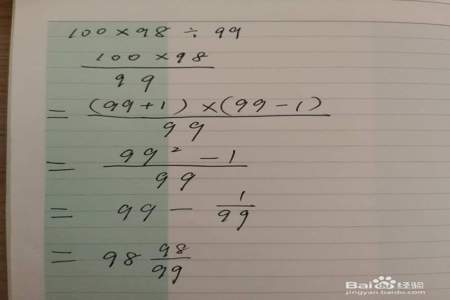 100×98÷99
100×98
99
= (99+1)×(99-1)
99
= 99² - 1
99
= 99 - 1/99
= 98 98/99
Baidu经验
jingyan.baidu.com